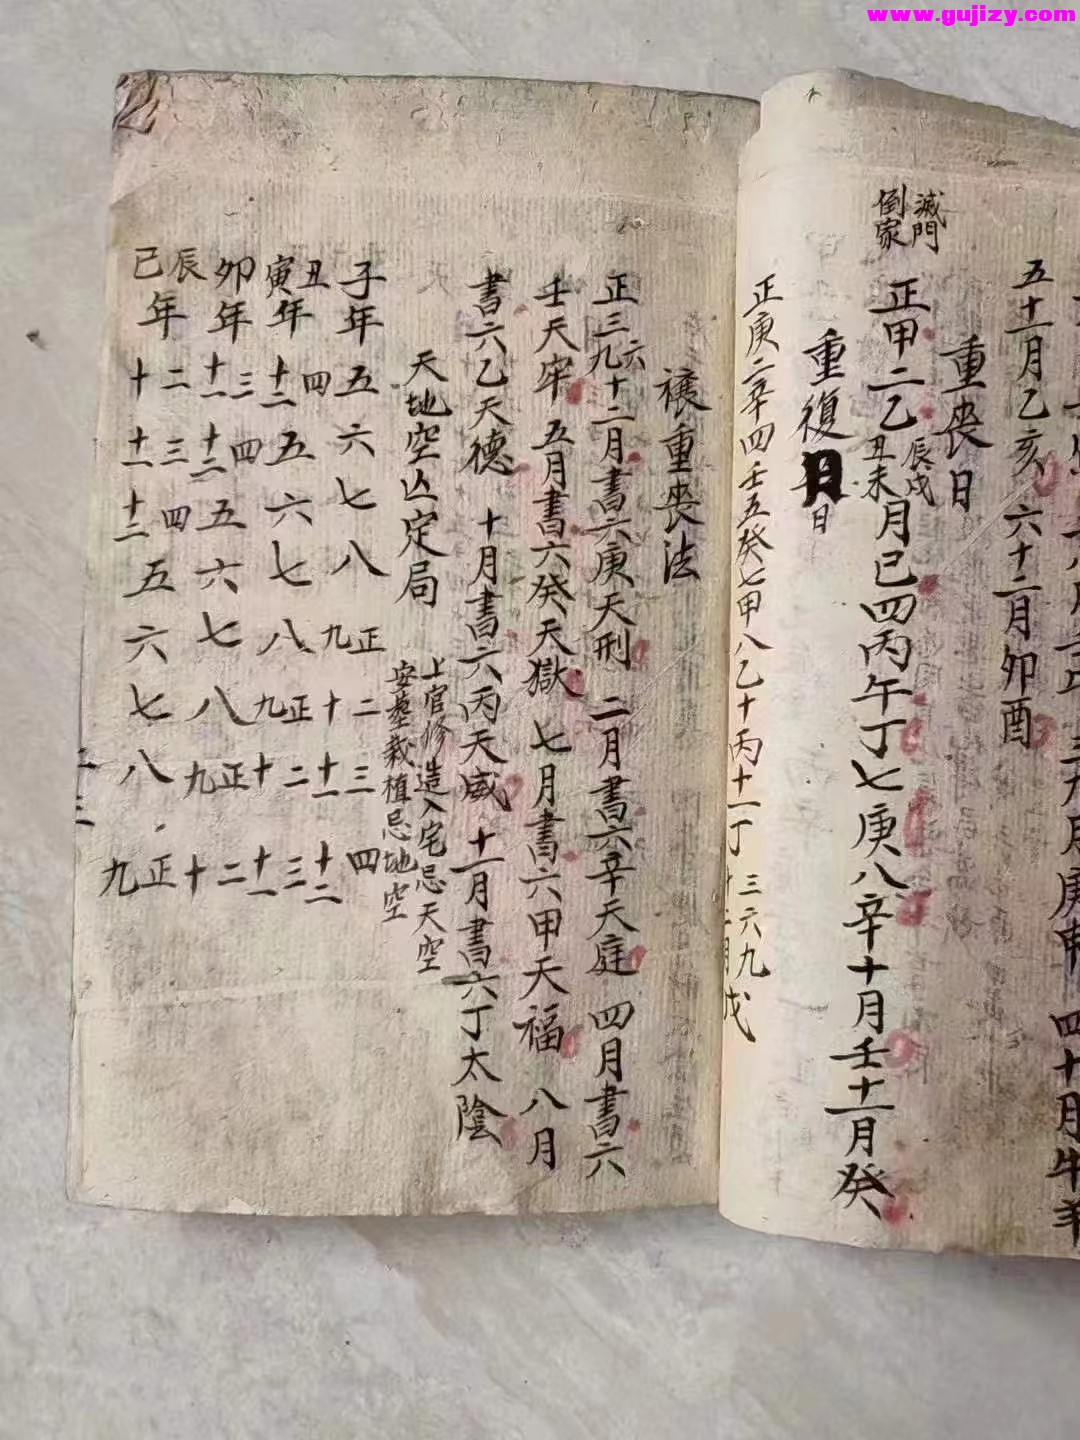 www.gujizy.com
五十一月乙亥 六十二月卯酉
重丧日
滅門
倒家
正甲二乙辰戌丑未月己四丙午丁七庚八辛十月壬十一月癸
重復日
日
正庚二辛四壬五癸七甲八乙十丙十一丁 三六九
十二月戊
禳重丧法
正三六九十二月書六庚天刑 二月書六辛天庭 四月書六
壬天牢 五月書六癸天獄 七月書六甲天福 八月
書六乙天德 十月書六丙天威 十一月書六丁太陰
天地空亡定局
上官修造入宅忌天空
安塟栽植忌地空
子年五六七八九十十一十二
正二三四
丑寅年四五六七八九十十一
十二正二三
卯年三四五六七八九十
十一十二正二
辰巳年二三四五六七八九
十十一十二正
十三